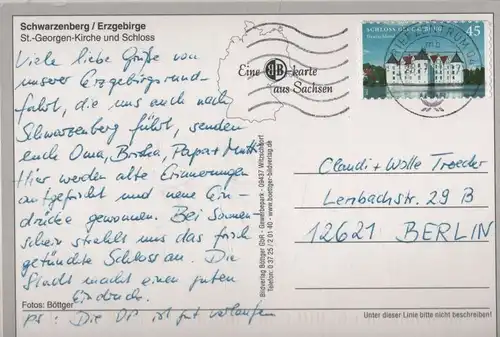 Schwarzenberg / Erzgebirge
St.-Georgen-Kirche und Schloss
Viele liebe Grüße von
unserer Erzgebirgsrund-
fahrt, die uns auch nach
Schwarzenberg führt, senden
euch Oma, Papa + Mutti.
Hier werden alte Erinnerungen
aufgefrischt und neue Ein-
drücke gewonnen. Bei Sonnen-
schein strahlt uns das frisch
getünchte Schloss an. Die
Stadt macht einen guten
Eindruck.
PS: Die OP ist gut verlaufen
Fotos: Böttger
Eine HB-karte
aus Sachsen
Bildverlag Böttger GbR - Gewerbepark - 09437 Witzschdorf
Telefon: 0 37 25 / 2 01 40 - www.boettger-bildverlag.de
SCHLOSS GLÜCKSBURG
45
Deutschland
Claudi + Wolle Troecker
Lenbachstr. 29 B
12621 BERLIN
Unter dieser Linie bitte nicht beschreiben!